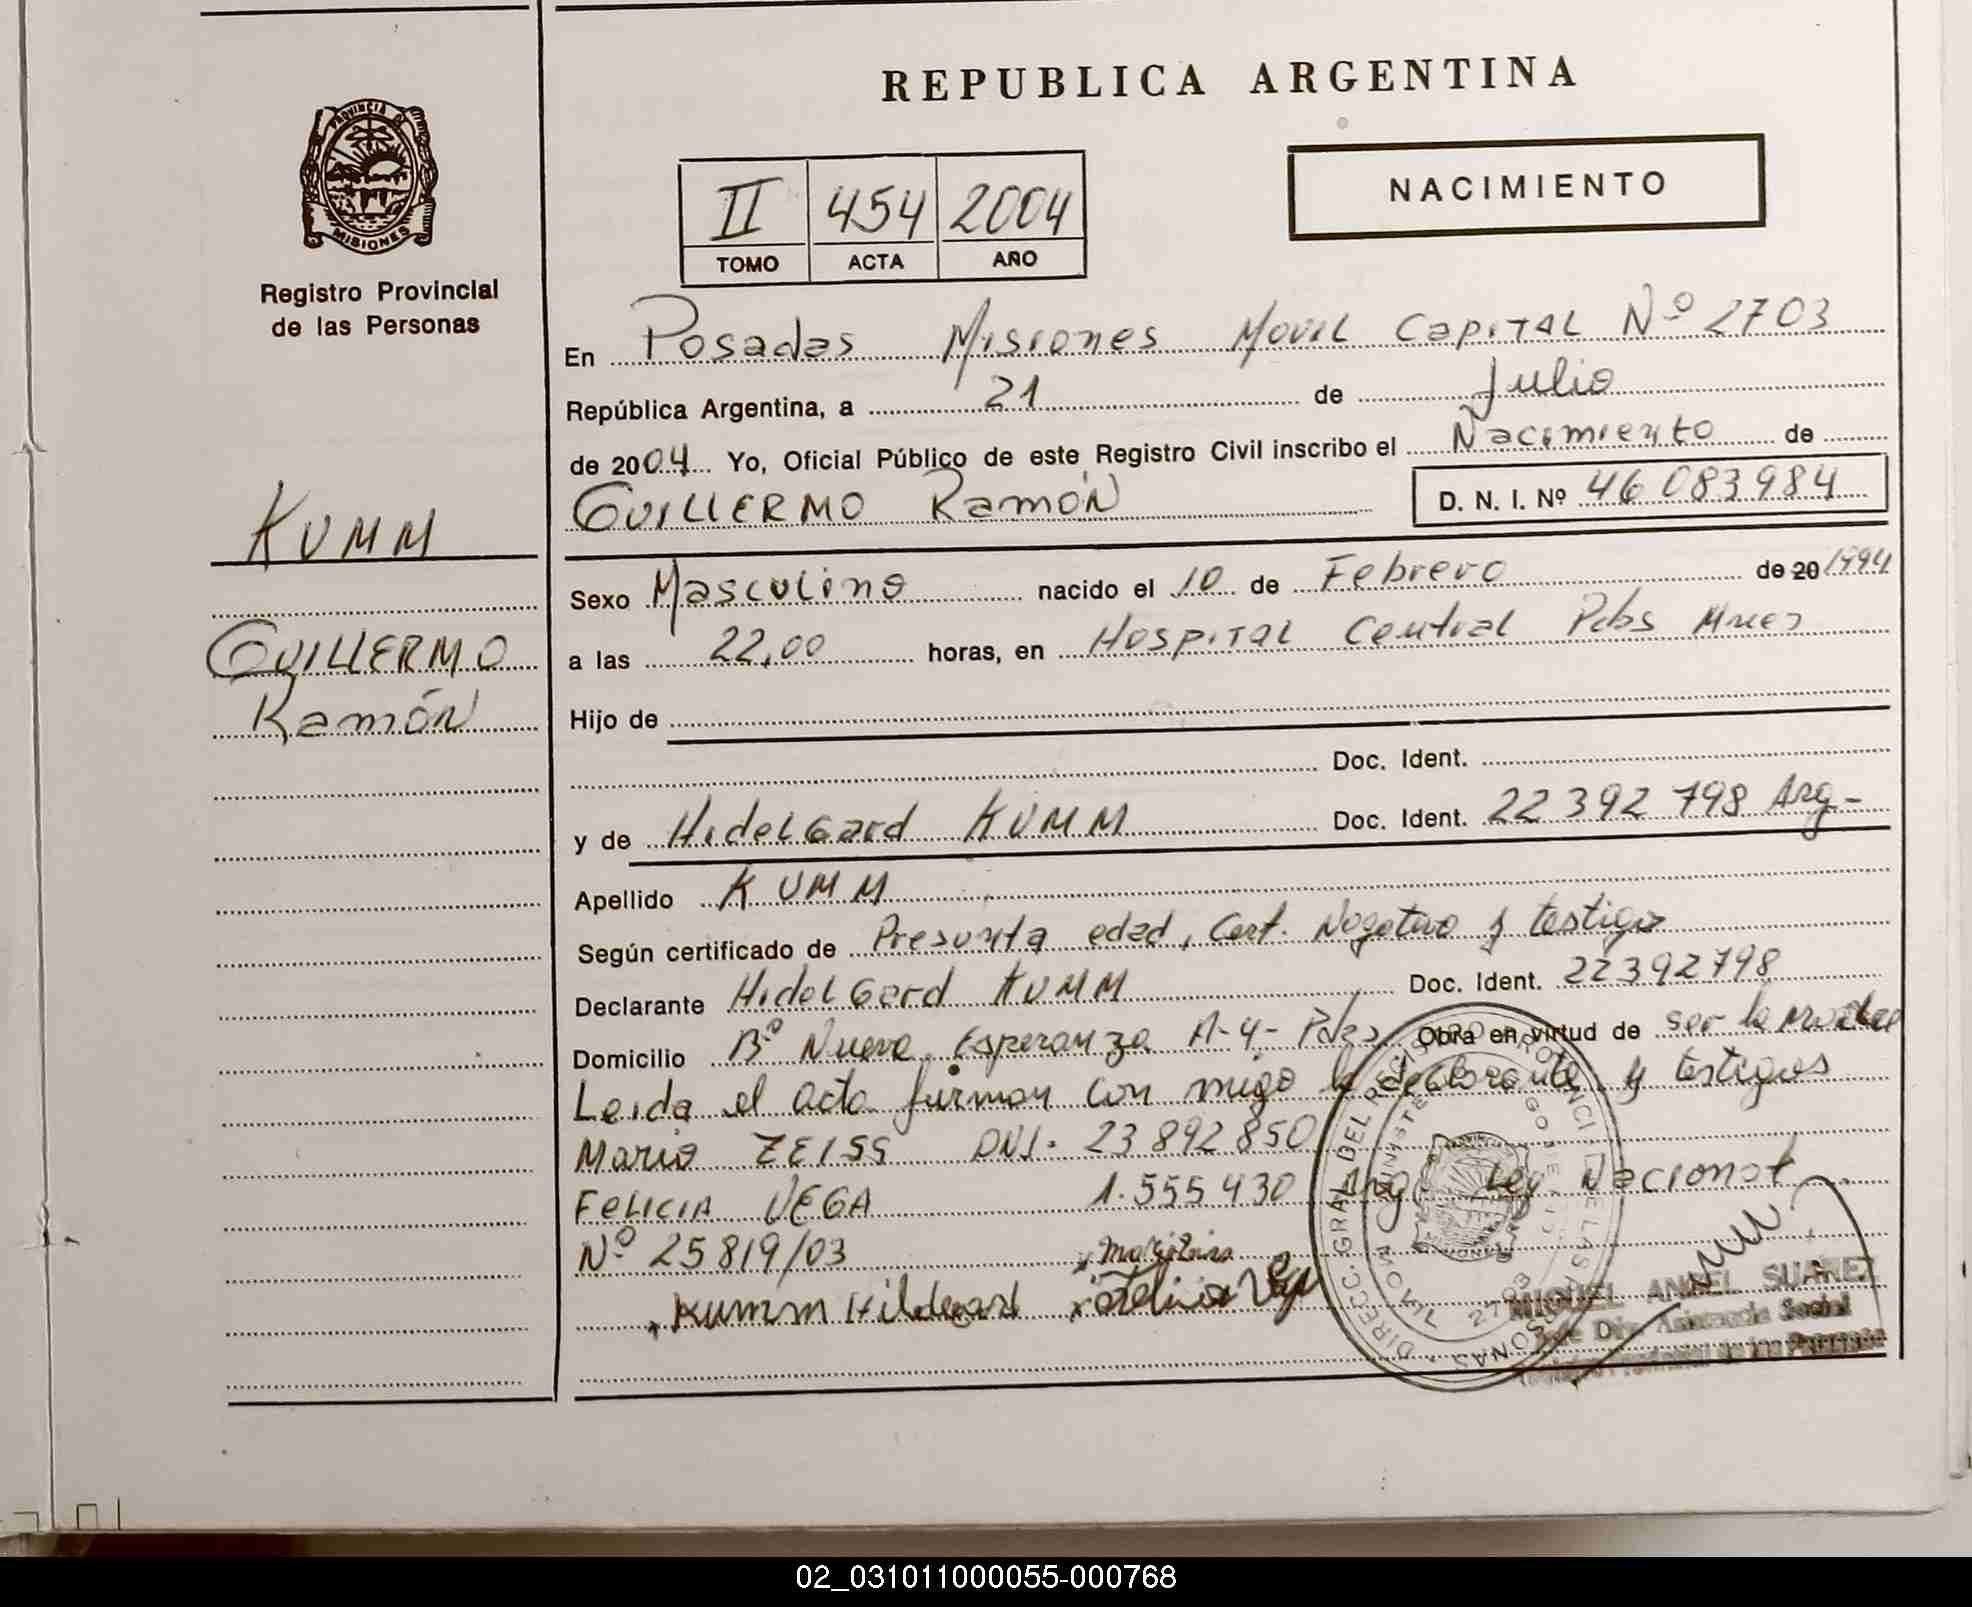 REPUBLICA ARGENTINA
PROVINCIA DE
MISIONES
Registro Provincial
de las Personas
NACIMIENTO
II 454 2004
TOMO ACTA AÑO
En Posadas Misiones Movil Capital Nº 2703
República Argentina, a 21 de Julio
de 2004 Yo, Oficial Público de este Registro Civil inscribo el Nacimiento de
GUILLERMO Ramón D. N. I. Nº 46 083 984
KUMM
GUILLERMO
Ramón
Sexo Masculino nacido el 10 de Febrero de 20 1994
a las 22,00 horas, en Hospital Central Pdas
Hijo de
Doc. Ident.
y de Hidelgard KUMM Doc. Ident. 22 392 798 Arg-
Apellido KUMM
Según certificado de Presunta edad, Cert. Negativo y testigo
Declarante Hidelgard KUMM Doc. Ident. 22392798
Domicilio Bº Nueva Esperanza A-4- Pdas Obra en virtud de ser la madre
Leida el acta firman con migo la declarante y testigos
Mario ZEISS DNI. 23 892 850
FELICIA VEGA 1.555 430 Arg Ley Nacional
Nº 25819/03
Kumm Hildegard Felicia Vega
DIRECC. GRAL DEL REGISTRO PROVINCIAL DE LAS PERSONAS
MOVIL 2703
MIGUEL ANGEL SUAREZ
Asistencia Social
de las Personas
02_031011000055-000768